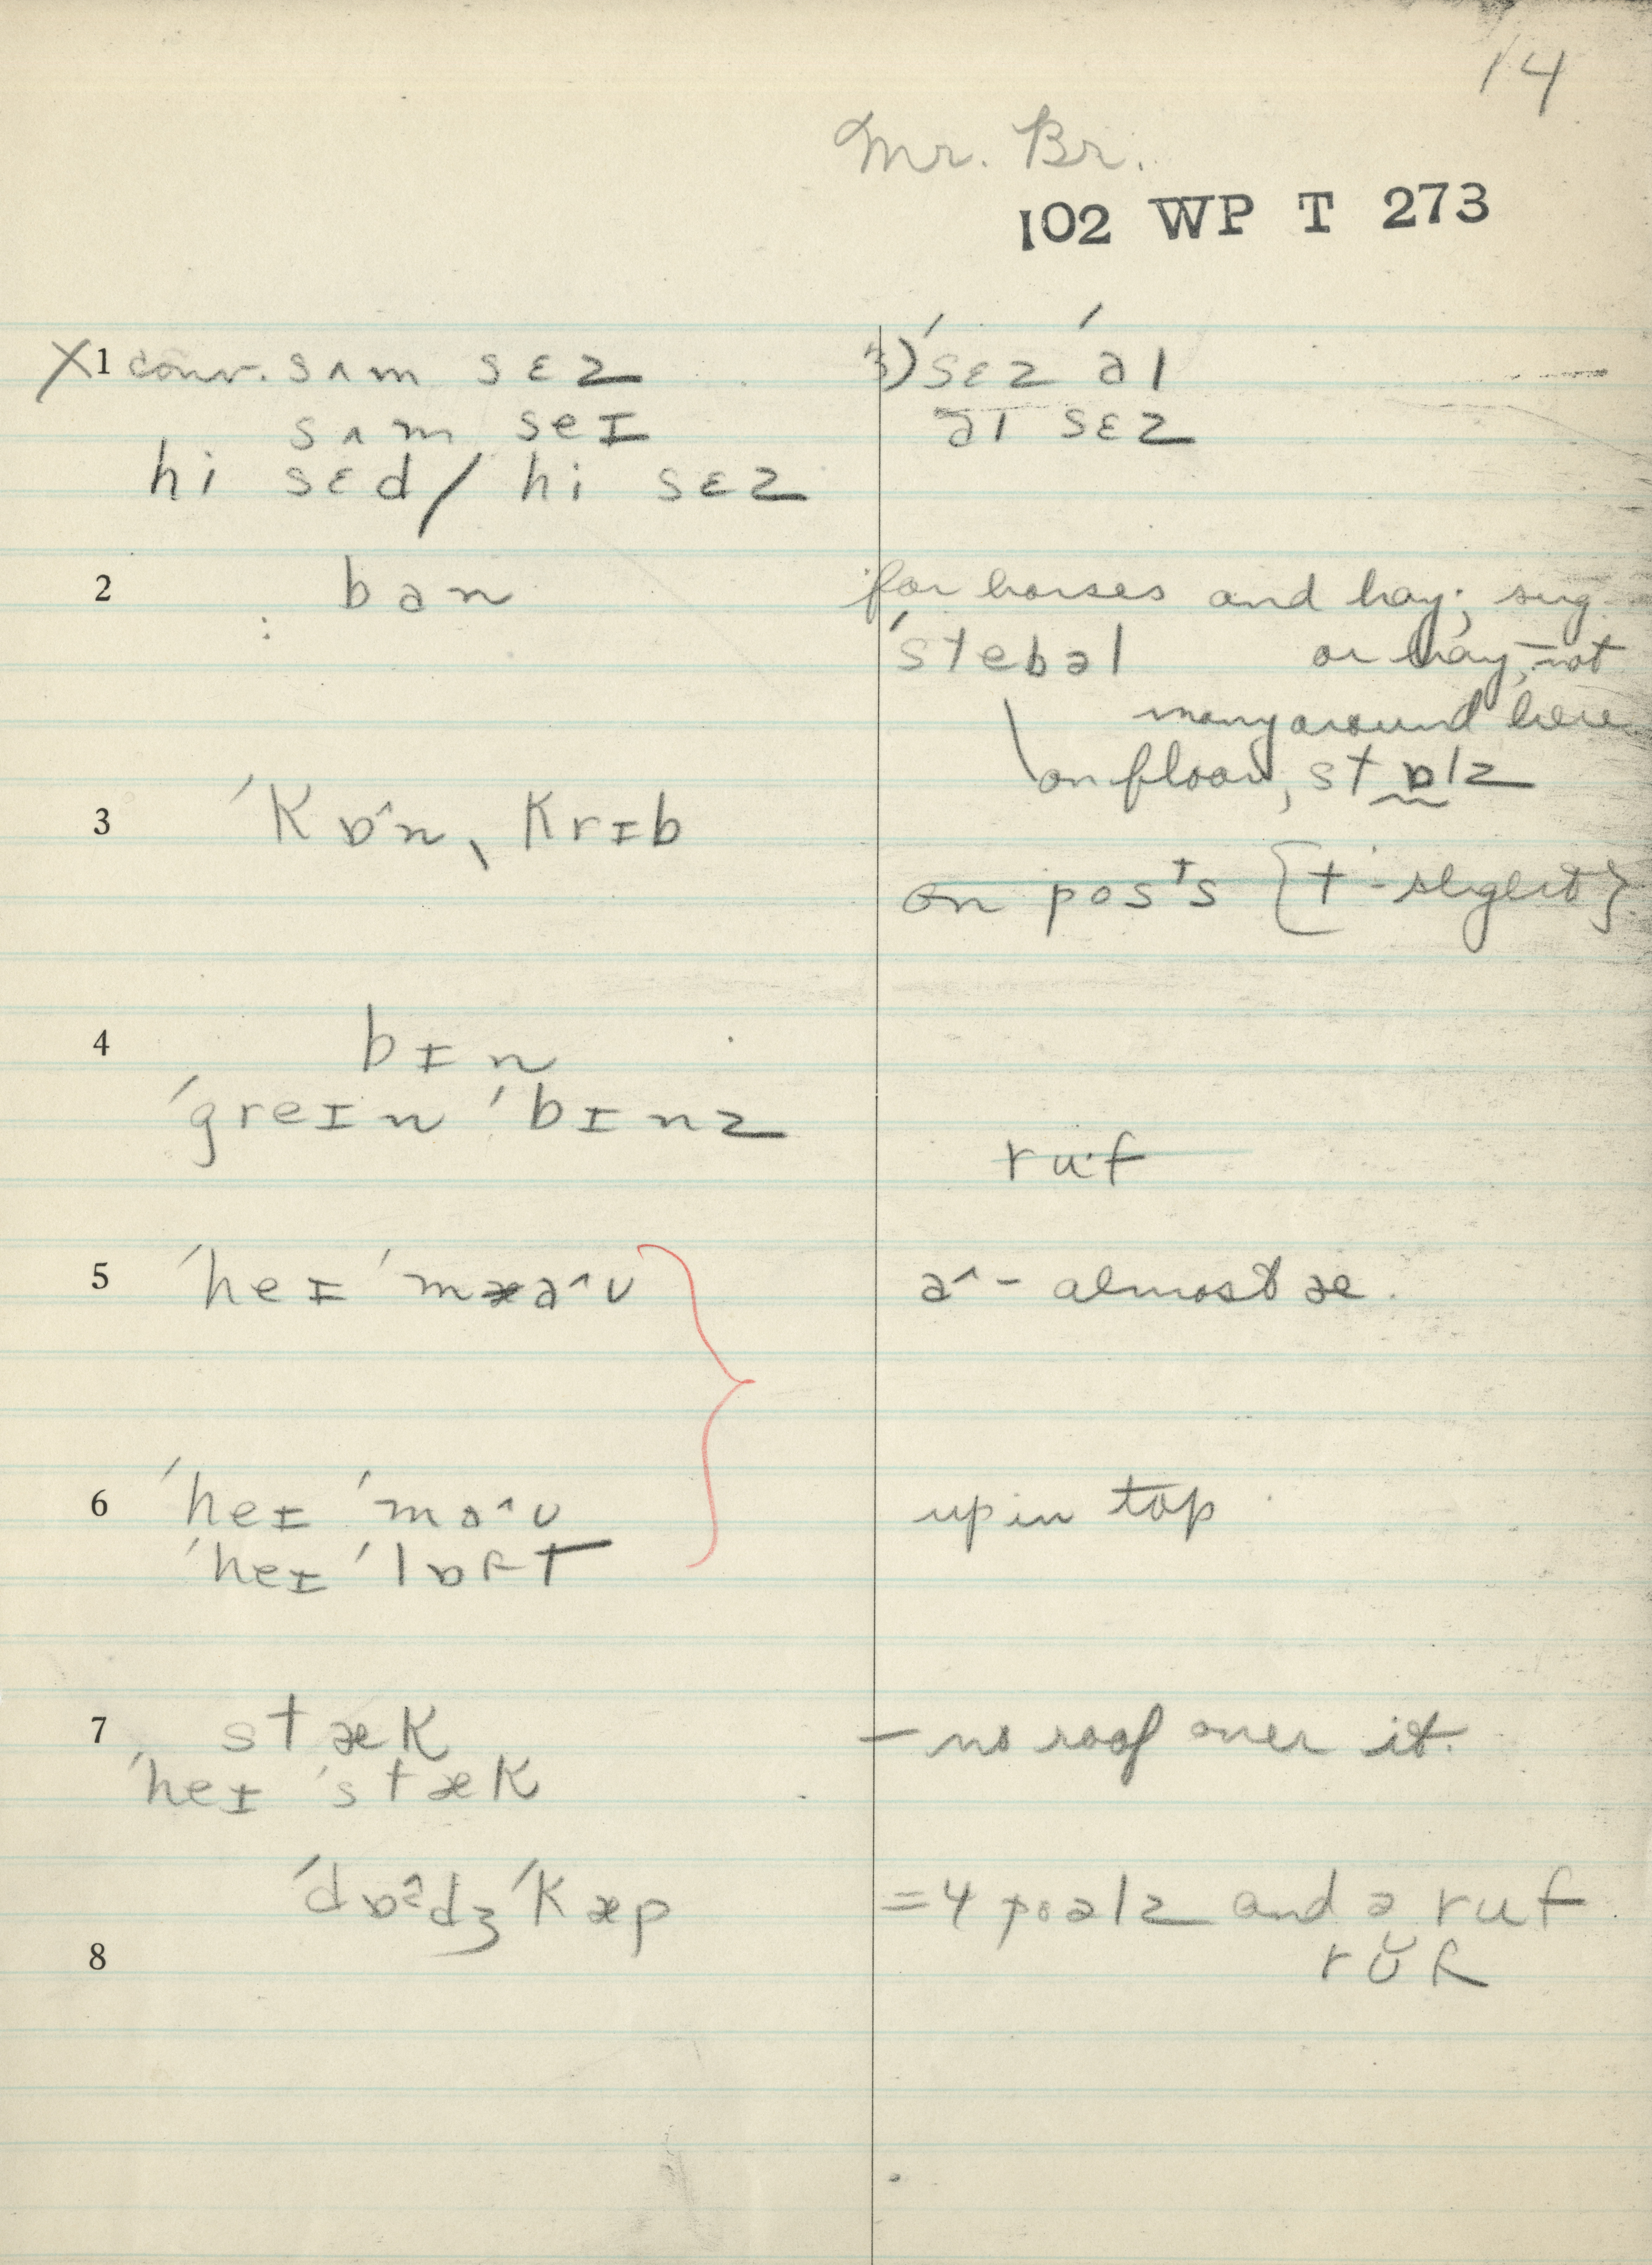 14
Mr. Br.
102 WP T 273
X 1 conv. sʌm sɛz
sʌm seɪ
hi sɛd / hi sɛz
3) ˈsɛz ˈaɪ
aɪ sɛz
2 ban
for horses and hay; sing.
ˈstebəl or hay, not
many around here
on floor, stɒlz
3 ˈkɒ^n, krɪb
on posᵗs [t - slight]
4 bɪn
ˈgreɪn ˈbɪnz
ru·f
5 ˈheɪ ˈmaˆʊ
aˆ - almost æ.
6 ˈheɪ ˈmaˆʊ
ˈheɪ ˈlɒft
up in top
7 stæk
ˈheɪ ˈstæk
- no roof over it.
ˈdɒˆdʒ ˈkæp
= 4 poəlz and ə ruf
rʊ̆f
8